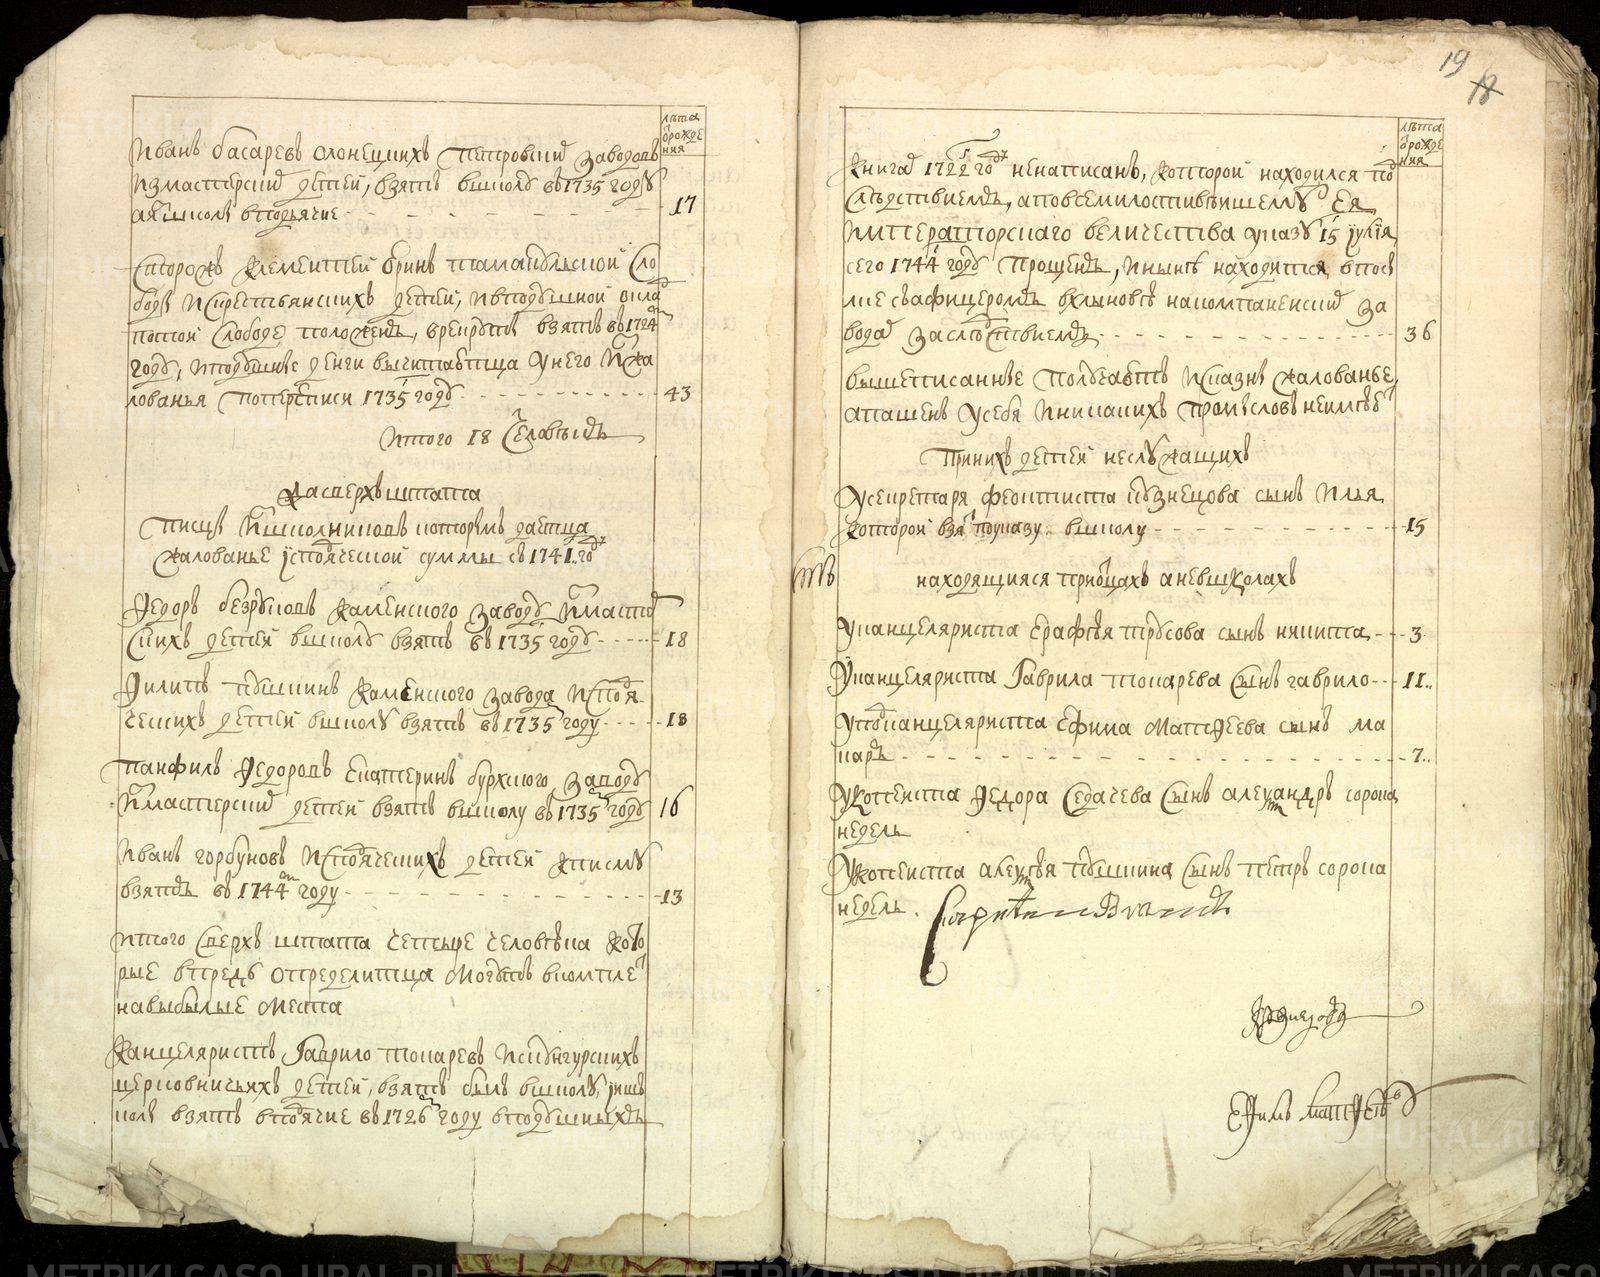 лѣта
ѿ рожде
ния
Иванъ басаревъ олонецкихъ петровскиⷯ заводовъ
измастерскиⷯ детей, взятъ вшколу въ 1735 году
аизшколы вподьячие 17
Сторожъ Клементей бринъ тамакульской сло
боды искрестьянскихъ детей, ивподушной окла
потой слободе положенъ, врекруты взятъ въ 1724
году, иподушные денги вычитаютца унего изжа
лованья поперепⷭиси 1735 году 43
итого 18 человѣкъ
Да сверхъ штата
писцы изшколниковъ которымъ даетца
жалованье исподяческой суммы съ 1741 го
Федоръ безруковъ Каменского заводу измасте
скихъ детей вшколу взятъ въ 1735 году 18
Филипъ пушкинъ Каменского завода исподя
ческихъ детей вшколу взятъ въ 1735 году 18
панфилъ Федоровъ Екатеринъ бурхского заводу
измастерскиⷯ детей взятъ вшколу въ 1735 году 16
Иванъ горбуновъ исподяческихъ детей кписму
взятъ въ 1744 году 13
итого сверхъ штата четыре человѣка кото
рые впредь определитца могутъ вкомплеⷮ
навыбылые места
Канцеляристъ Гаврило токаревъ искунгурскихъ
церковничьихъ детей, взятъ былъ вшколу, ишъ
колы взятъ вподячие въ 1726 году вподушныхъ
19
18
лѣта
ѿ рожде
ния
книгаⷯ 1722 гоⷣ ненаписанъ, которой находился по
слѣдствиемъ, аповсемилостивѣйшему Ея
Императорскаго величества указу 15 июля
сего 1744 году прощенъ, инынѣ находится впос
лке съафицеромъ вхлыновѣ накомпанейскиⷯ за
водаⷯ заслѣдствиемъ 36
вышеписанные получаютъ исказны жалованье
апашенъ усебя иникакихъ промысловъ неимѣюⷮ
Приниⷯ детей неслужащихъ
Усекретаря феоктиста кузнецова сынъ Илья
которой взяⷮ поуказу вшколу 15
находящияся приотцахъ аневшколахъ
Уканцеляриста Ерафея трусова сынъ никита 3
Уканцеляриста Гаврила токарева сынъ гаврило 11
Уподканцеляриста Ефима Матфеева сынъ ма
каръ 7
Укопеиста Федора Седачева сынъ александръ сорока
недель
Укопеиста алексѣя пушкина сынъ петръ сорока
недель
Capiten Brandt
Кузнецовъ
Ефимъ Матфеевъ